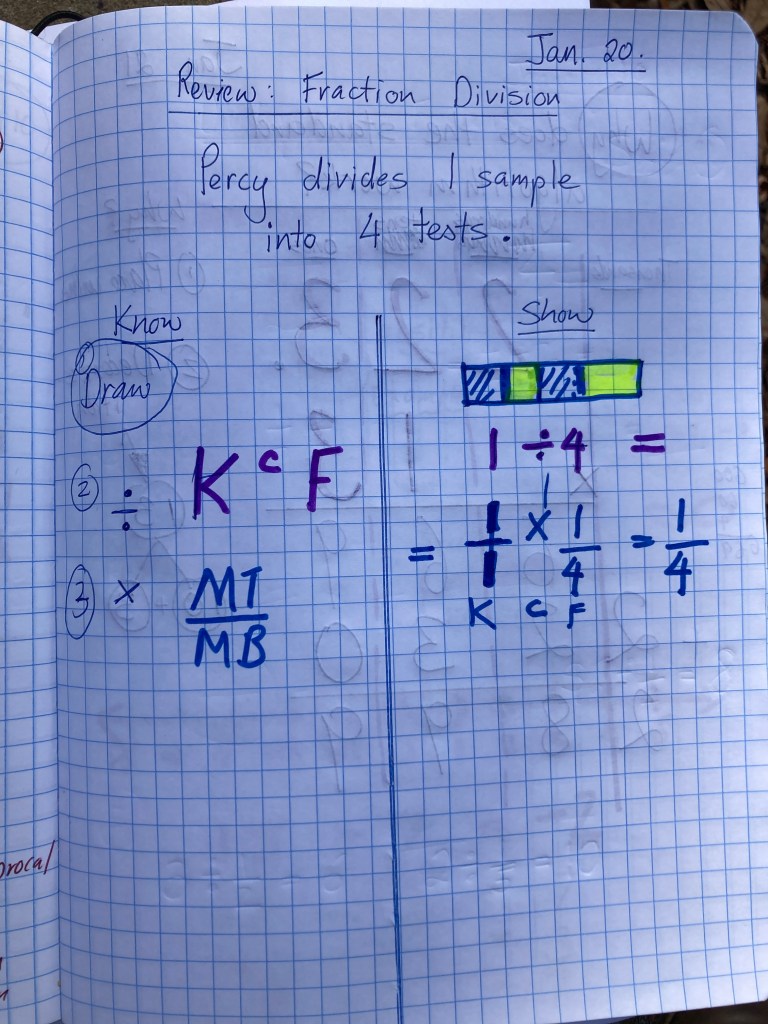 Jan. 20.
Review: Fraction Division
Percy divides 1 sample
into 4 tests.
Know
① Draw
② ÷ K C F
③ × MT
MB
Show
1 ÷ 4 =
= 1/1 × 1/4 = 1/4
K C F
procal